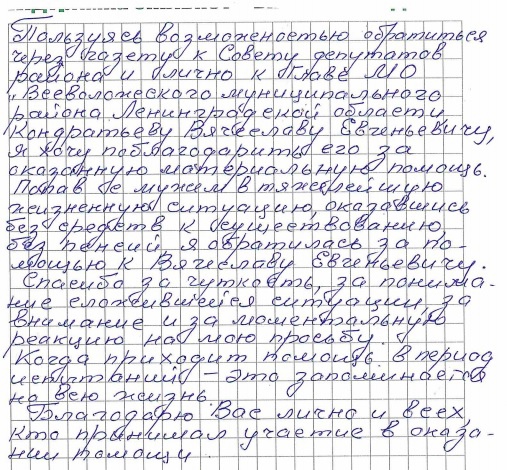 Пользуясь возможностью обратиться
через газету к Совету депутатов
района и лично к Главе МО
„Всеволожского муниципального
района Ленинградской области
Кондратьеву Вячеславу Евгеньевичу,
я хочу поблагодарить его за
оказанную материальную помощь.
Попав с мужем в тяжелейшую
жизненную ситуацию, оказавшись
без средств к существованию,
без пенсий, я обратилась за по-
мощью к Вячеславу Евгеньевичу.
Спасибо за чуткость, за понима-
ние сложившейся ситуации, за
внимание и за моментальную
реакцию на мою просьбу.
Когда приходит помощь в период
испытаний – это запоминается
на всю жизнь.
Благодарю Вас лично и всех,
кто принимал участие в оказа-
нии помощи.